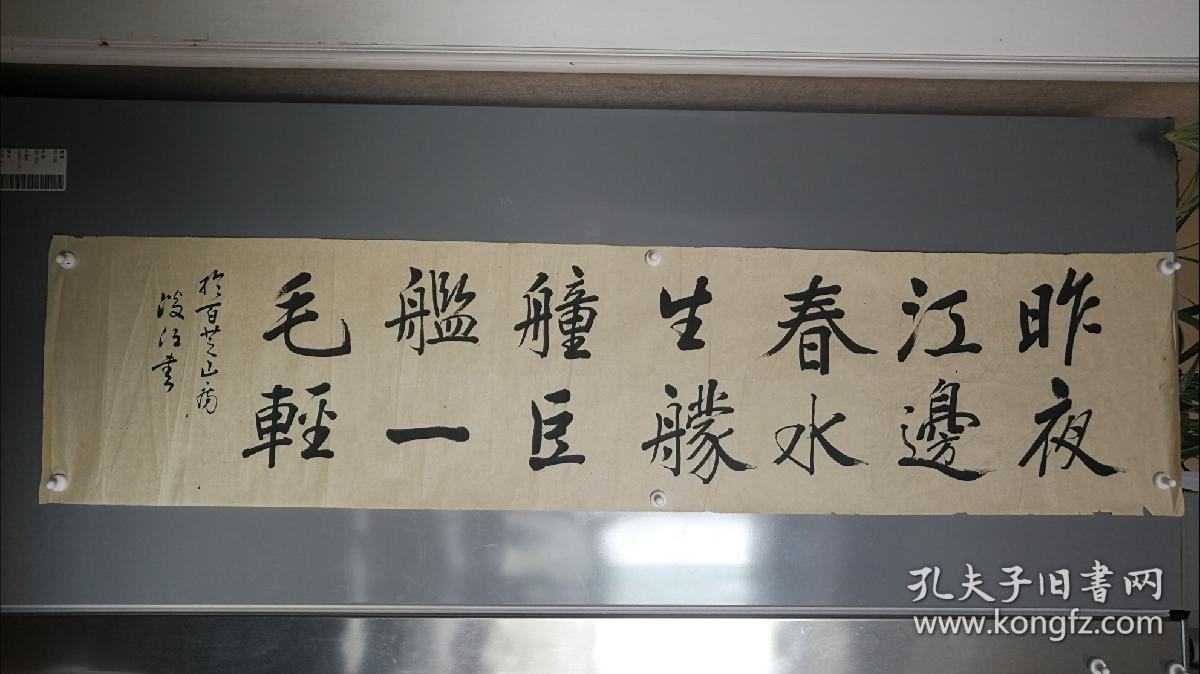 昨夜
江邊
春水
生艨
艟巨
艦一
毛輕
於百芝山房
书
孔夫子旧書网
www.kongfz.com